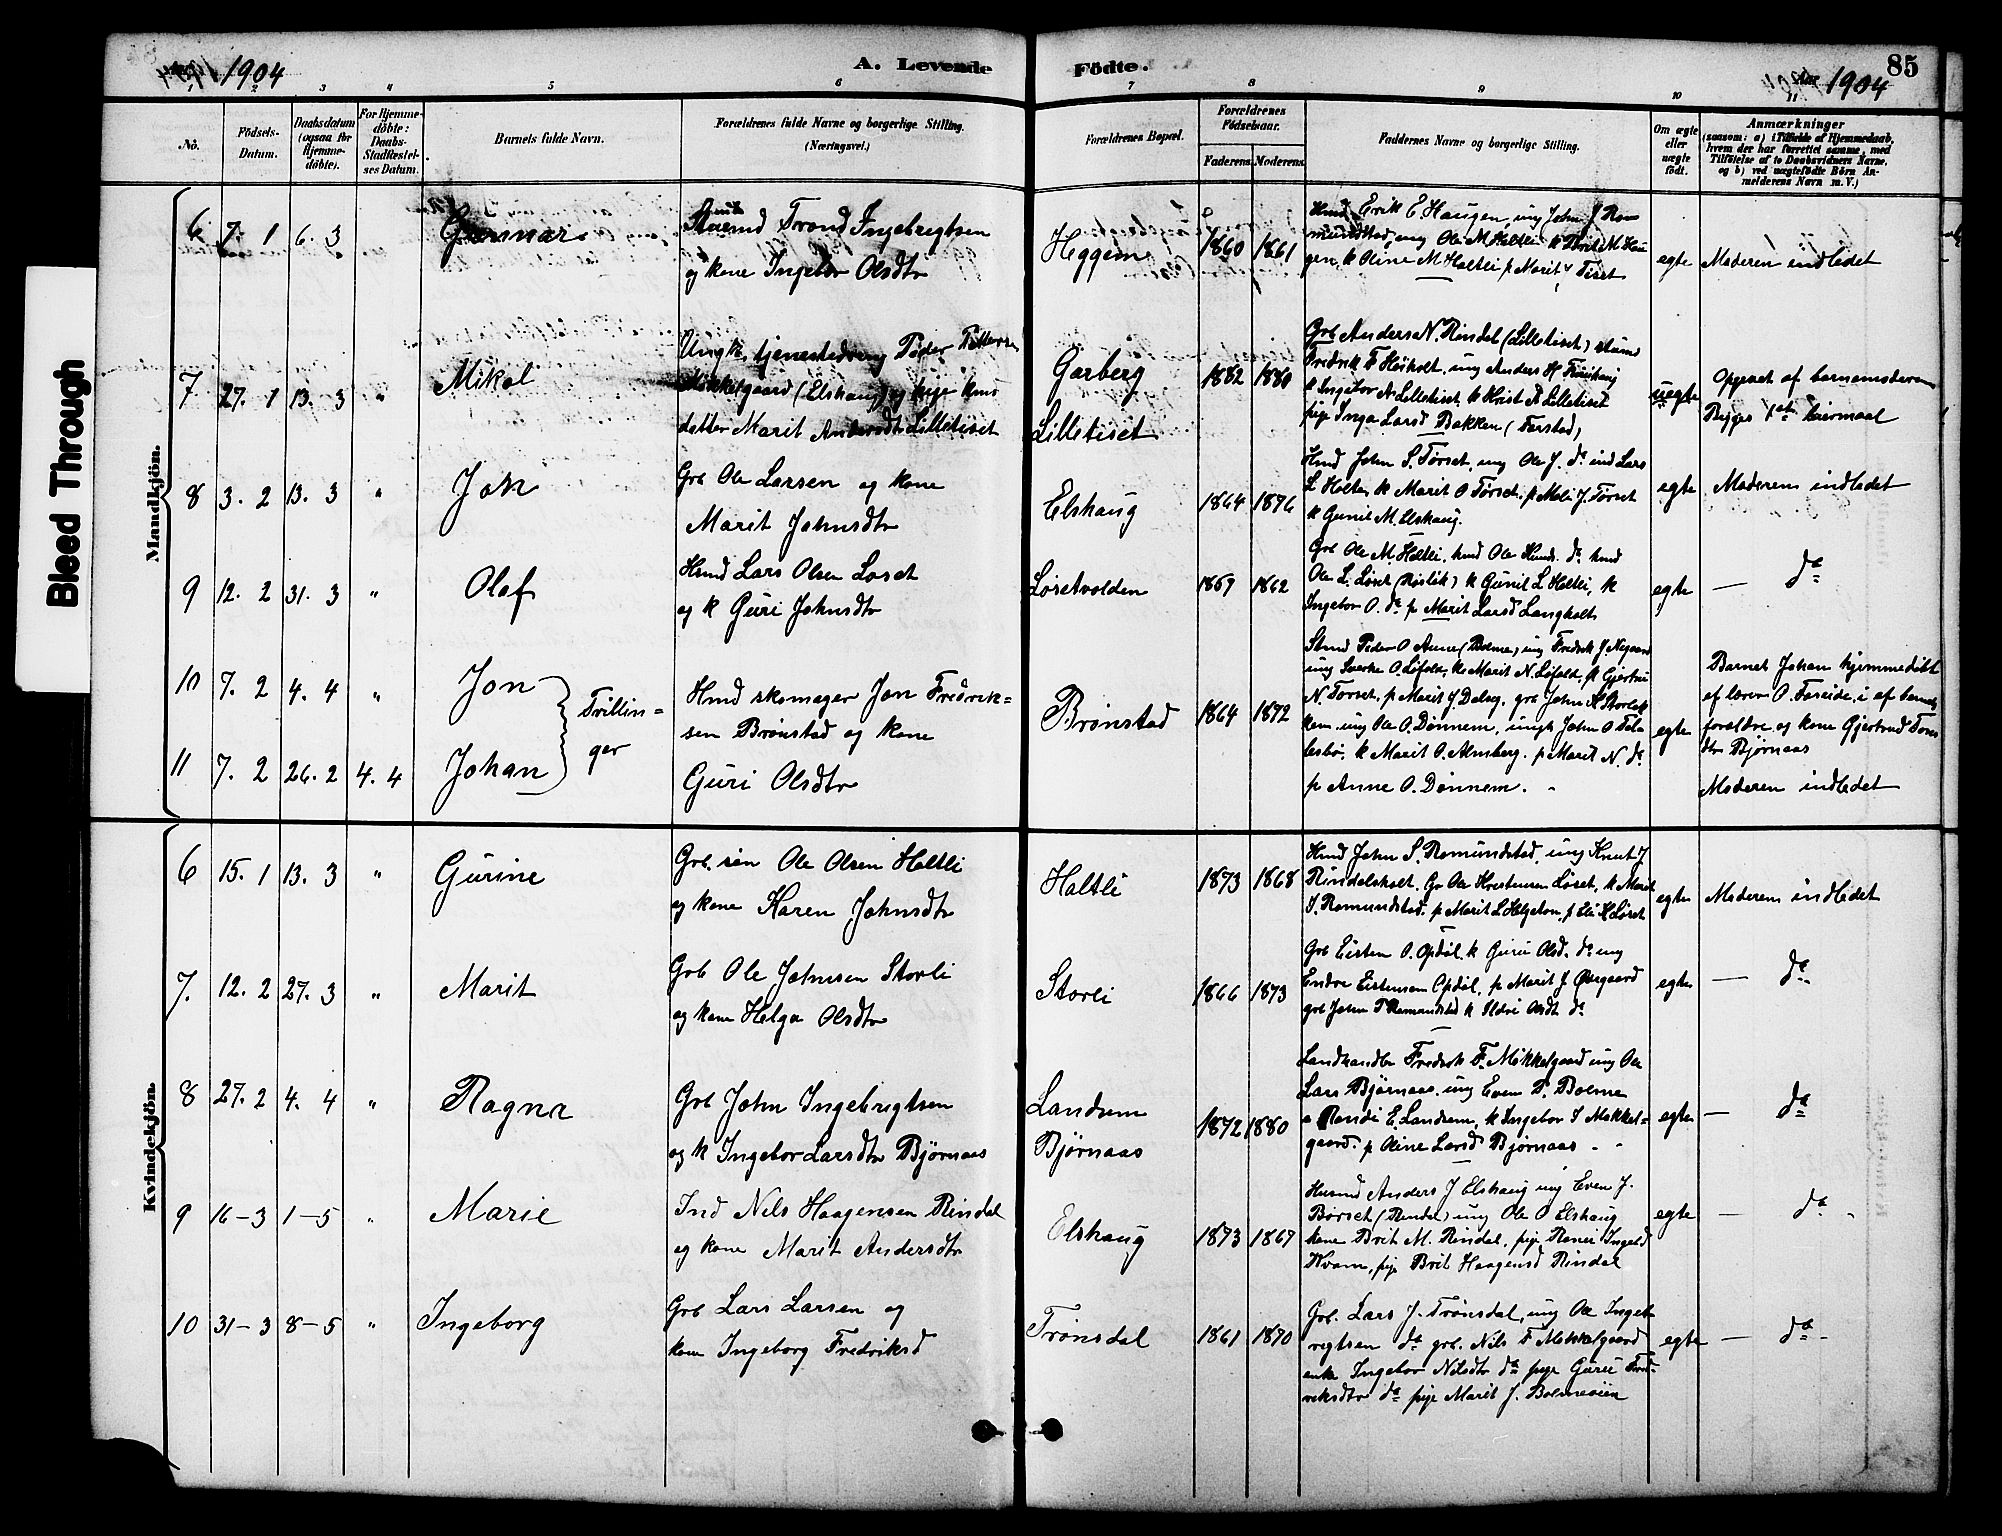 1904
A. Levende
Födte.
Aar 1904
85
Bleed Through
1 2 3 4 5 6 7 8 9 10 11
No.
Födsels-Datum.
Daabsdatum (ogsaa for Hjemme-döbte).
For Hjemme-döbte: Daabs-Stadfæstel-ses Datum.
Barnets fulde Navn.
Forældrenes fulde Navne og borgerlige Stilling.
(Næringsvei.)
Forældrenes Bopæl.
Forældrenes Födselsaar.
Faderens Moderens
Faddernes Navne og borgerlige Stilling.
Om ægte eller uægte födt.
Anmærkninger
(saasom: a) i Tilfælde af Hjemmedaab,
hvem der har forrettet samme, med
Tilföielse af to Daabsvidners Navne,
og b) ved uægtefödte Börn An-
melderens Navn m. V.)
Mandkjön.
6 7. 1 6. 3 Gunnar
Trond Ingebrigtsen
og kone Ingebor Olsdtr
Heggem
1860 1861
Hmd Erik E Haugen, ung John J Rom
mundstad, ung Ole M Holtli k Marit M Hau
gen, k Oline M Holtli p Marit Tiset
egte
Moderen indledet
7 27. 1 13. 3 " Mikal
Ungk. tjenestedreng Peder Pettersen
Mikkelgaard (Elshaug) og pige hus
datter Marit Andersdtr Lilletiset
Garberg
Lilletiset
1882 1880
Grb Anders N. Rindal (Lilletiset)
Fredrik F Høiholt, ung Anders H
k Ingebor N Lilletiset, k Krist Lilletiset
pige Inga Larsd Bakken (Farstad)
uegte
Opgivet af barnemoderen
Begges 1ste leiermaal
8 3. 2 13. 3 " Jon
Grb Ole Larsen og kone
Marit Johnsdtr
Elshaug
1864 1876
Hmd John S. Tørset, ung Ole J. do ind Lars
L Holten, k Marit O Tørset, p Mali J. Tørset
k Gunil M. Elshaug.
egte
Moderen indledet
9 12. 2 31. 3 " Olaf
Hmd Lars Olsen Løset
og k Guri Johnsdtr
Løsetvolden
1869 1862
Grb Ole M. Holtli, hmd Ole do hmd
Ole L. Løset (Røslik) k Gunil L Holtli, k
Ingebor O. do p Marit Larsd Langholt
egte
— do
10 7. 2 4. 4 " Jon
11 7. 2 26. 2 4. 4 Johan
Trillin=
ger
Hmd skomager Jon Fredrik=
sen Brønstad og kone
Guri Olsdtr
Brønstad
1864 1872
Peder O Aune (Bolme) ung Fredrik J. Negaard
ung Sverke O. Løfald, k Marit N. Løfald, p Gjertru
N. Torset, p Marit J Dalseg, grb John H Storlok
ken, ung Ole O. Dønnem, ungk John O
k Marit O. Almberg. p Marit N. do
p Anne O. Dønnem.
egte
Barnet Johan hjemmedøbt
af lærer O. Forseide, i af barnets
forældre og kone Gjertrud
dtr Bjørnaas
Moderen indledet
Kvindekjön.
6 15. 1 13. 3 " Gurine
Grb. søn Ole Olsen Holtli
og kone Karen Johnsdtr
Holtli
1873 1868
Hmd John S. Romundstad, ung Knut J.
Rindalsholt. Gr Ole Kristensen Løset, k Marit
J. Romundstad. p Marit L Helgeton, p Eli K Løset
egte
Moderen indledet
7. 12. 2 27. 3 " Marit
Grb Ole Johnsen Storli
og kone Helga Olsdtr
Storli
1866 1873
Grb Eisten O. Opdøl, k Guru Olsd. do ung
Endre Eistensen Opdøl, p Marit J
grb John T Romundstad k Ildri Olsdt do
egte
— do
8 27. 2 4. 4 " Ragna
Grb John Ingebrigtsen
og k Ingebor Larsdtr Bjørnaas
Landrem
Bjørnaas
1872 1880
Landhandler Fredrik F. Mikkelgaard ung Ole
Lars Bjørnaas. ung Even P. Bolme
Randi E. Landrem, k Ingebor I Mikkel=
gaard. p Oline Larsd Bjørnaas
egte
— do
9 16-3 1-5 " Marie
Ind Nils Haagensen Rindal
og kone Marit Andersdtr
Elshaug
1873 1867
Husmd Anders J Elshaug ung Even J.
Børset (Rindal) ung Ole O Elshaug
kone Brit M. Rindal, pige Ranei Ingeld
Kvam, pige Brit Haagensd Rindal
egte
— do
10 31-3 8-5 " Ingeborg
Grb Lars Larsen og
kone Ingeborg Fredriksd
Trønsdal
1861 1870
Grb. Lars J. Trønsdal, ung Ole Ingeb
rigtsen do grb. Nils F Mikkelgaard
enke Ingebor Nilsdtr do pige Guru Fred
riksdtr do pige Marit J. Bolmeøien
egte
— do